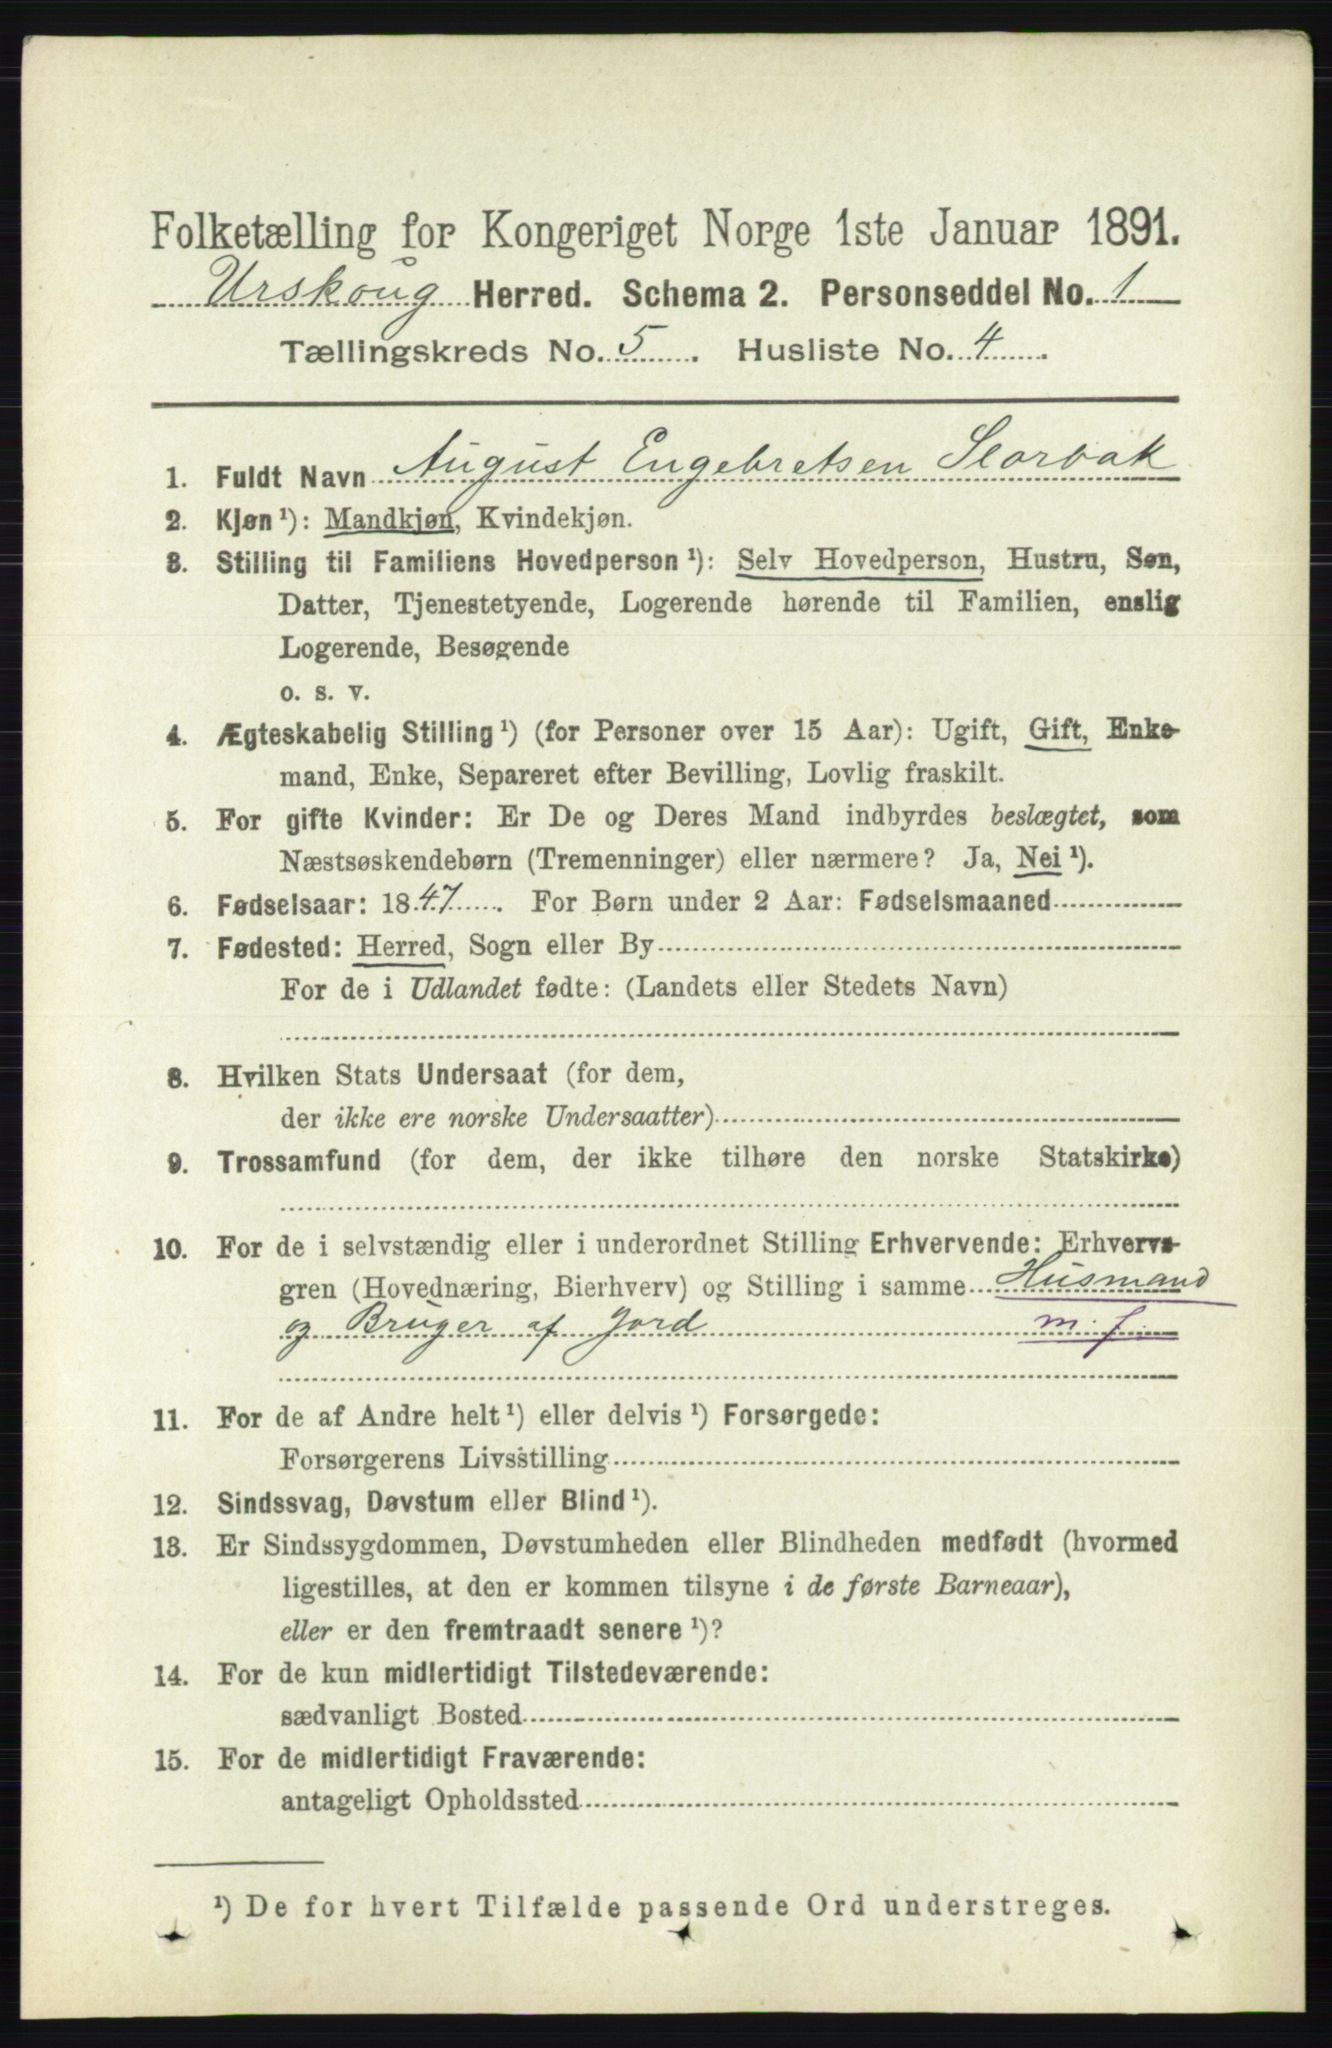 Folketælling for Kongeriget Norge 1ste Januar 1891.
Urskoug Herred. Schema 2. Personseddel No. 1
Tællingskreds No. 5. Husliste No. 4.
1. Fuldt Navn August Engebretsen Slorbak
2. Kjøn¹): Mandkjøn, Kvindekjøn.
3. Stilling til Familiens Hovedperson¹): Selv Hovedperson, Hustru, Søn,
Datter, Tjenestetyende, Logerende hørende til Familien, enslig
Logerende, Besøgende
o. s. v.
4. Ægteskabelig Stilling¹) (for Personer over 15 Aar): Ugift, Gift, Enke-
mand, Enke, Separeret efter Bevilling, Lovlig fraskilt.
5. For gifte Kvinder: Er De og Deres Mand indbyrdes beslægtet, som
Næstsøskendebørn (Tremenninger) eller nærmere? Ja, Nei¹).
6. Fødselsaar: 1847. For Børn under 2 Aar: Fødselsmaaned
7. Fødested: Herred, Sogn eller By
For de i Udlandet fødte: (Landets eller Stedets Navn)
8. Hvilken Stats Undersaat (for dem,
der ikke ere norske Undersaatter)
9. Trossamfund (for dem, der ikke tilhøre den norske Statskirke)
10. For de i selvstændig eller i underordnet Stilling Erhvervende: Erhvervs-
gren (Hovednæring, Bierhverv) og Stilling i samme Husmand
og Bruger af Jord m. j.
11. For de af Andre helt¹) eller delvis¹) Forsørgede:
Forsørgerens Livsstilling
12. Sindssvag, Døvstum eller Blind¹).
13. Er Sindssygdommen, Døvstumheden eller Blindheden medfødt (hvormed
ligestilles, at den er kommen tilsyne i de første Barneaar),
eller er den fremtraadt senere¹)?
14. For de kun midlertidigt Tilstedeværende:
sædvanligt Bosted
15. For de midlertidigt Fraværende:
antageligt Opholdssted
¹) De for hvert Tilfælde passende Ord understreges.